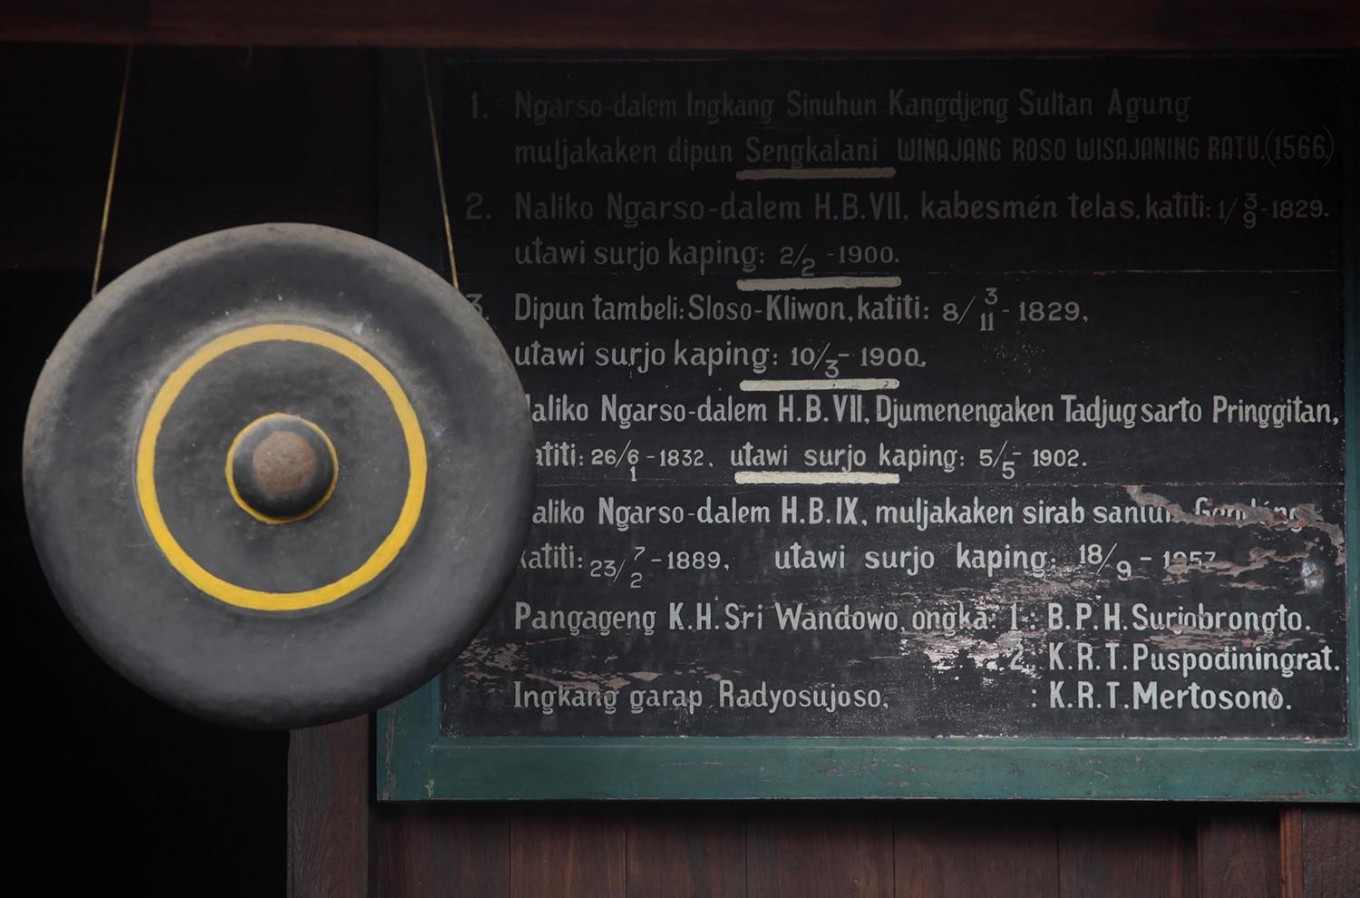 1. Ngarso-dalem Ingkang Sinuhun Kangdjeng Sultan Agung
muljakaken dipun Sengkalani WINAJANG ROSO WISAJANING RATU.(1566)
2. Naliko Ngarso-dalem H.B.VII, kabesmén telas, katiti: 1/3/9-1829.
utawi surjo kaping: 2/2 -1900.
3. Dipun tambeli: Sloso-Kliwon, katiti: 8/3/11 - 1829,
utawi surjo kaping: 10/3 - 1900.
aliko Ngarso-dalem H.B.VII, Djumenengaken Tadjug sarto Pringgitan,
atiti: 26/6/1 - 1832. utawi surjo kaping: 5/5 - 1902.
aliko Ngarso-dalem H.B.IX, muljakaken sirab
katiti: 23/7/2 - 1889, utawi surjo kaping: 18/9 - 1957
Pangageng K.H.Sri Wandowo, ongka: 1 : B.P.H.Surjobrongto.
2. K.R.T.Puspodiningrat.
Ingkang garap Radyosujoso, : K.R.T.Mertosono.